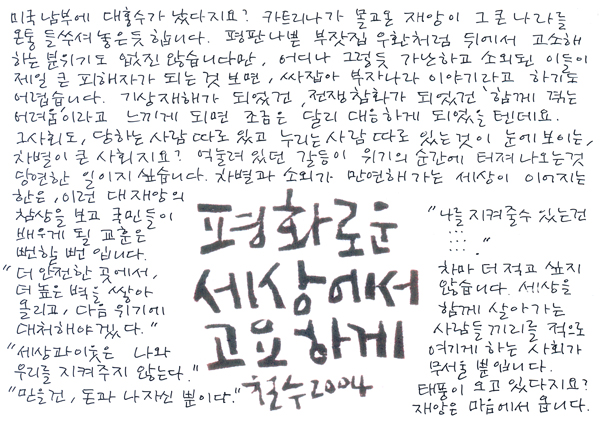 미국 남부에 대홍수가 났다지요? 카트리나가 몰고온 재앙이 그 큰 나라를
온통 들쑤셔 놓은듯 합니다. 평판나쁜 부잣집 우환처럼 뒤에서 고소해
하는 분위기도 없진 않습니다만, 어디나 그렇듯 가난하고 소외된 이들이
제일 큰 피해자가 되는것 보면, 싸잡아 부자나라 이야기라고 하기도
어렵습니다. 기상재해가 되었건, 전쟁참화가 되었건 '함께 겪는
어려움'이라고 느끼게 되면 조금은 달리 대응하게 되었을 텐데요.
그 사회도, 당하는 사람 따로 있고 누리는 사람 따로 있는것이 눈에 보이는,
차별이 큰 사회지요? 억눌려 있던 갈등이 위기의 순간에 터져 나오는것
당연한 일이지 싶습니다. 차별과 소외가 만연해가는 세상이 이어지는
한은, 이런 대재앙의
참상을 보고 국민들이
배우게 될 교훈은
뻔할 뻔 입니다.
"더 안전한 곳에서,
더 높은 벽을 쌓아
올리고, 다음 위기에
대처해야겠다."
"세상과 이웃은 나와
우리를 지켜주지 않는다."
"믿을건, 돈과 나 자신 뿐이다."
평화로운
세상에서
고요하게
철수 2004
"나를 지켜줄수 있는건
……
……."
차마 더 적고 싶지
않습니다. 세상을
함께 살아가는
사람들끼리를 적으로
여기게 하는 사회가
무서울 뿐입니다.
태풍이 오고 있다지요?
재앙은 마음에서 옵니다.